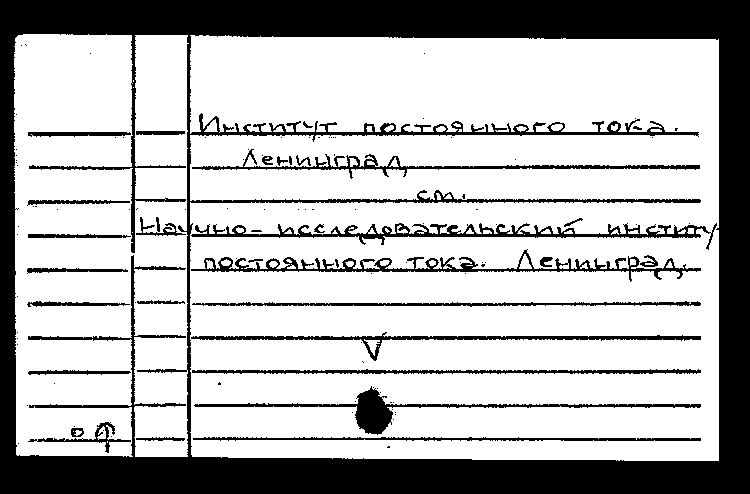 Институт постоянного тока.
Ленинград
см.
Научно-исследовательский институ
постоянного тока. Ленинград.
V